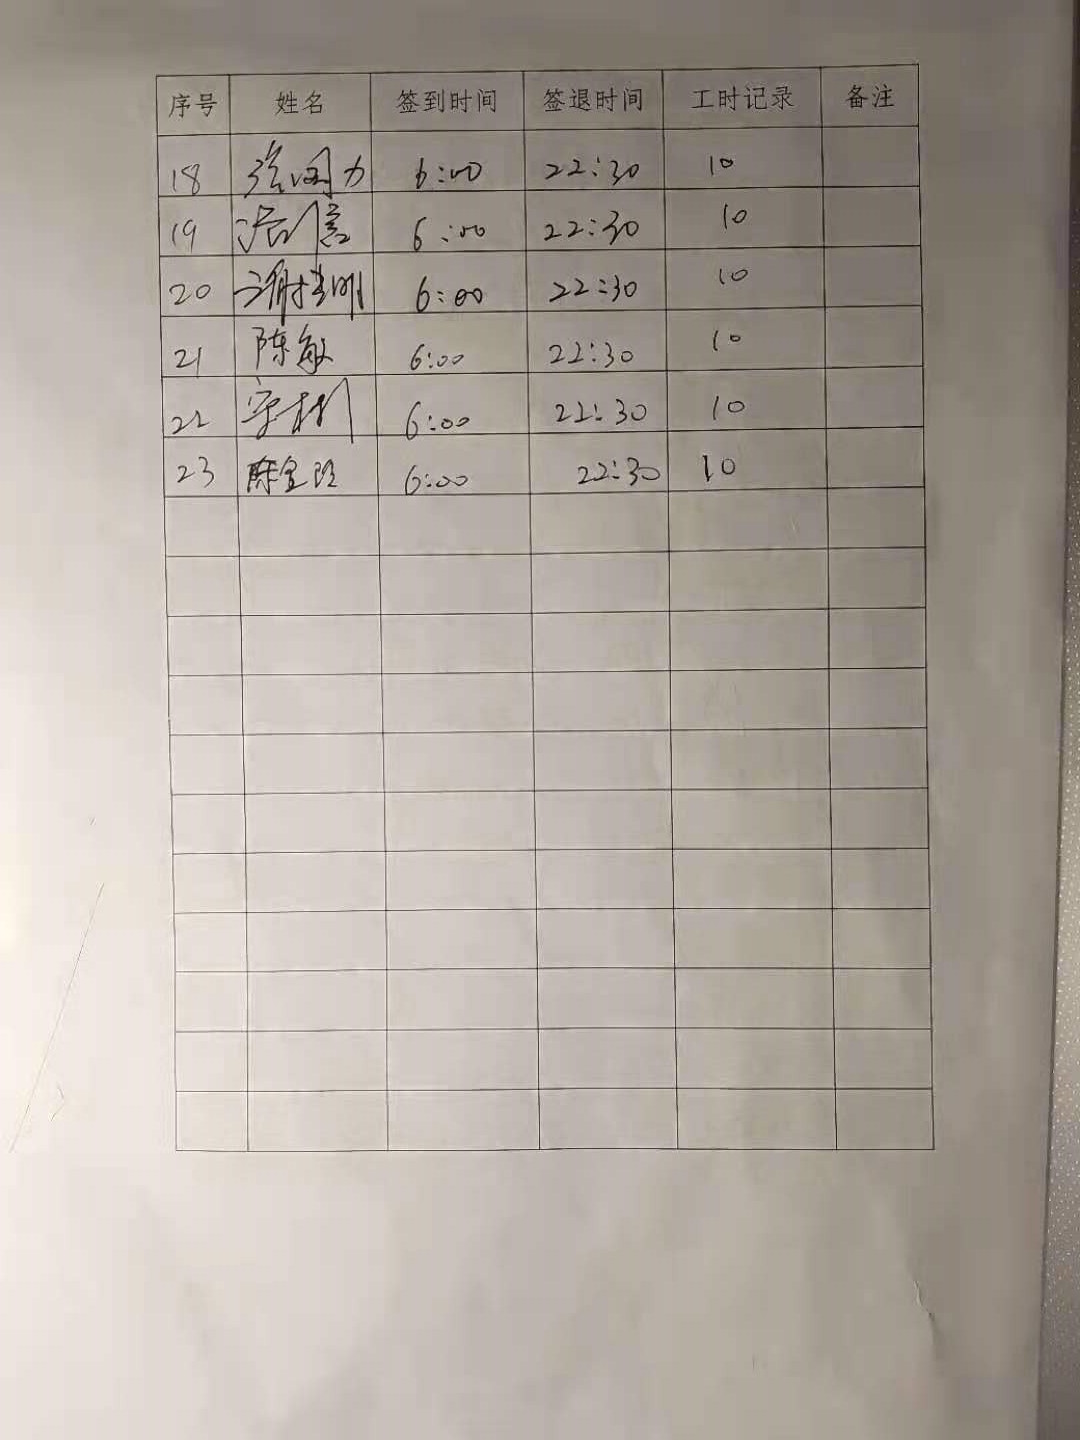 序号 姓名 签到时间 签退时间 工时记录 备注
18 6:00 22:30 10
19 6:00 22:30 10
20 6:00 22:30 10
21 陈敏 6:00 22:30 10
22 6:00 22:30 10
23 6:00 22:30 10